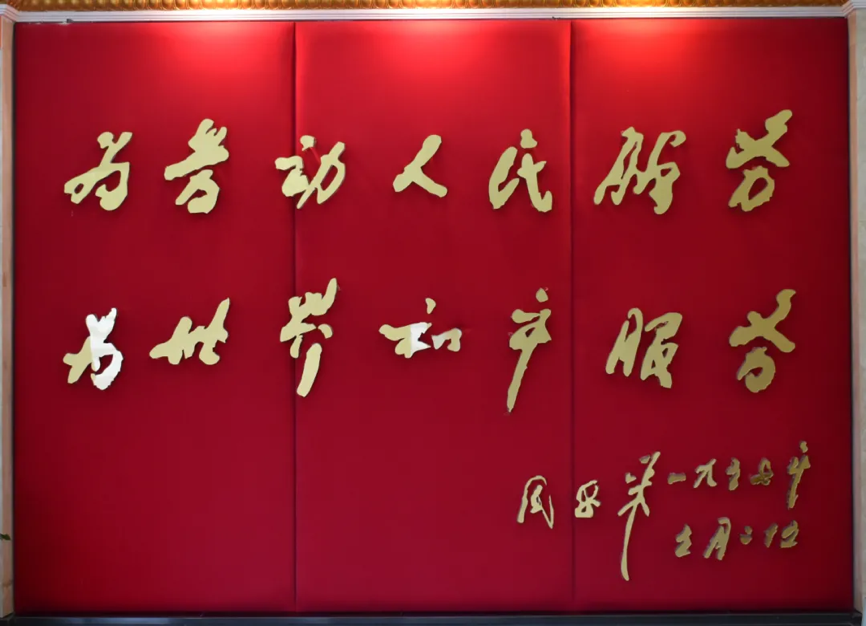 为劳动人民服务
为世界和平服务
周恩来 一九五 年
月二